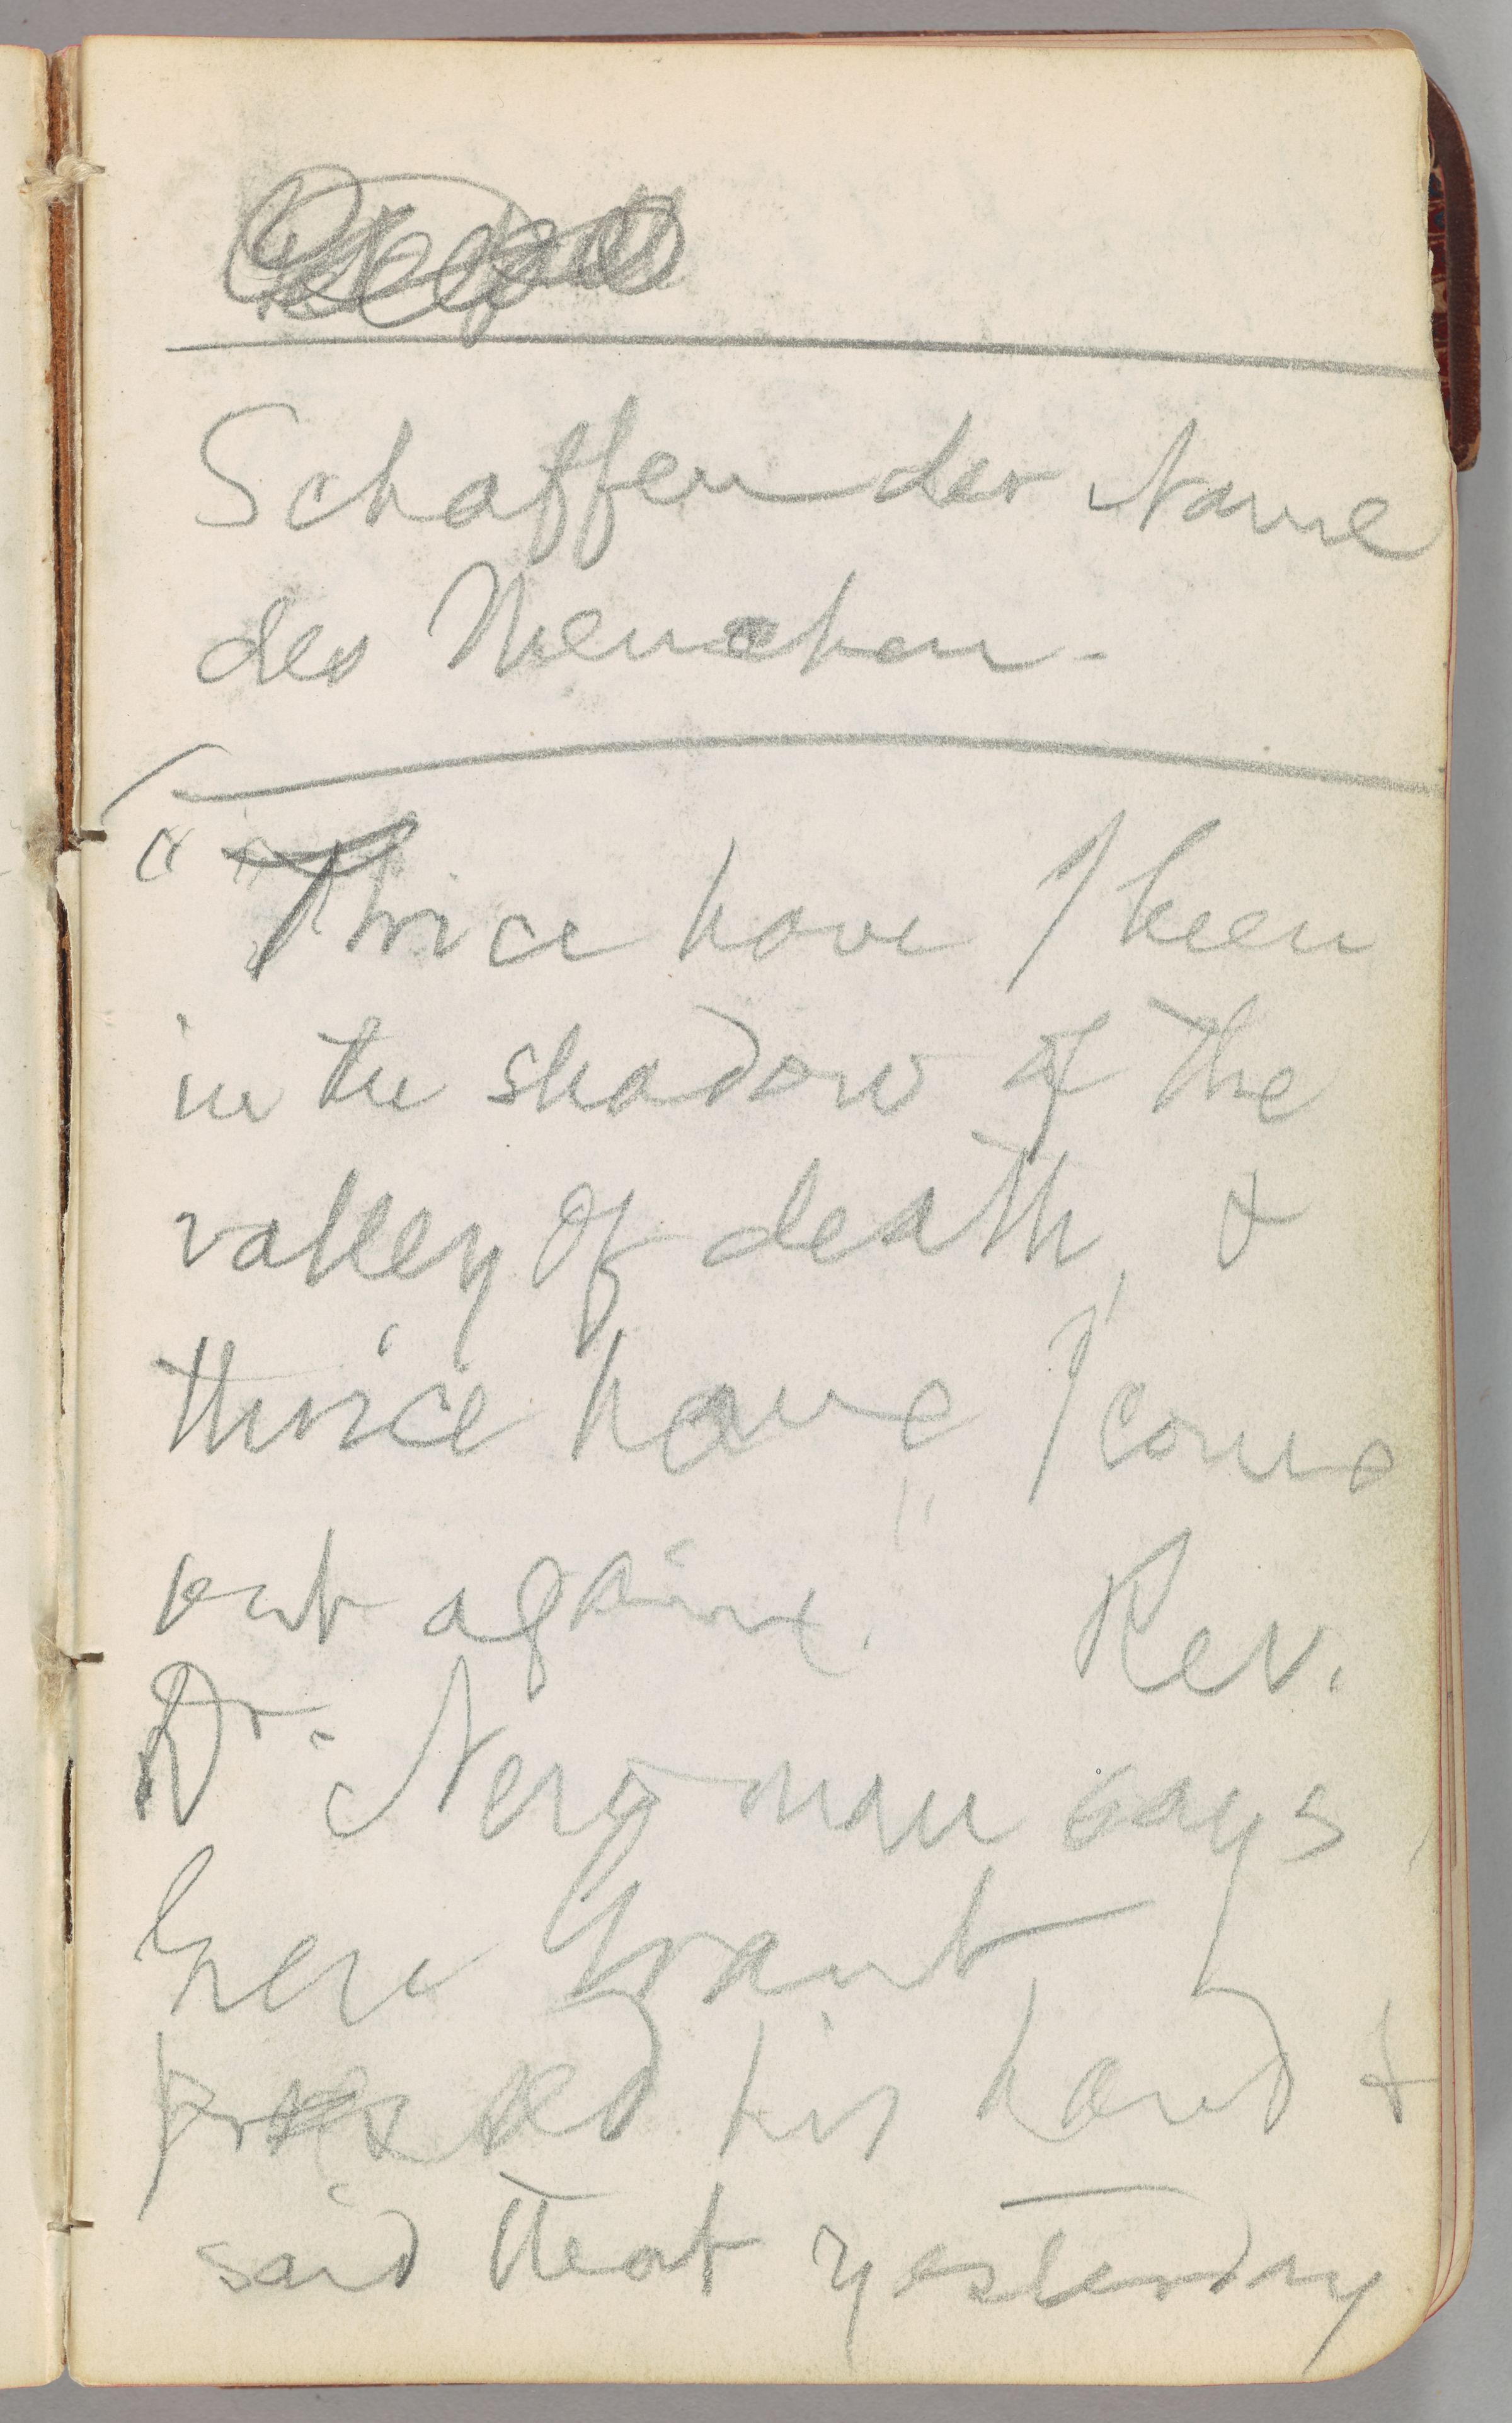 Schaffen der Name
des Menschen.
" Thrice have I been
in the shadow of the
valley of death, &
thrice have I come
out again." Rev.
Dr. Newman says
Gen Grant
pressed his hand &
said that yesterday